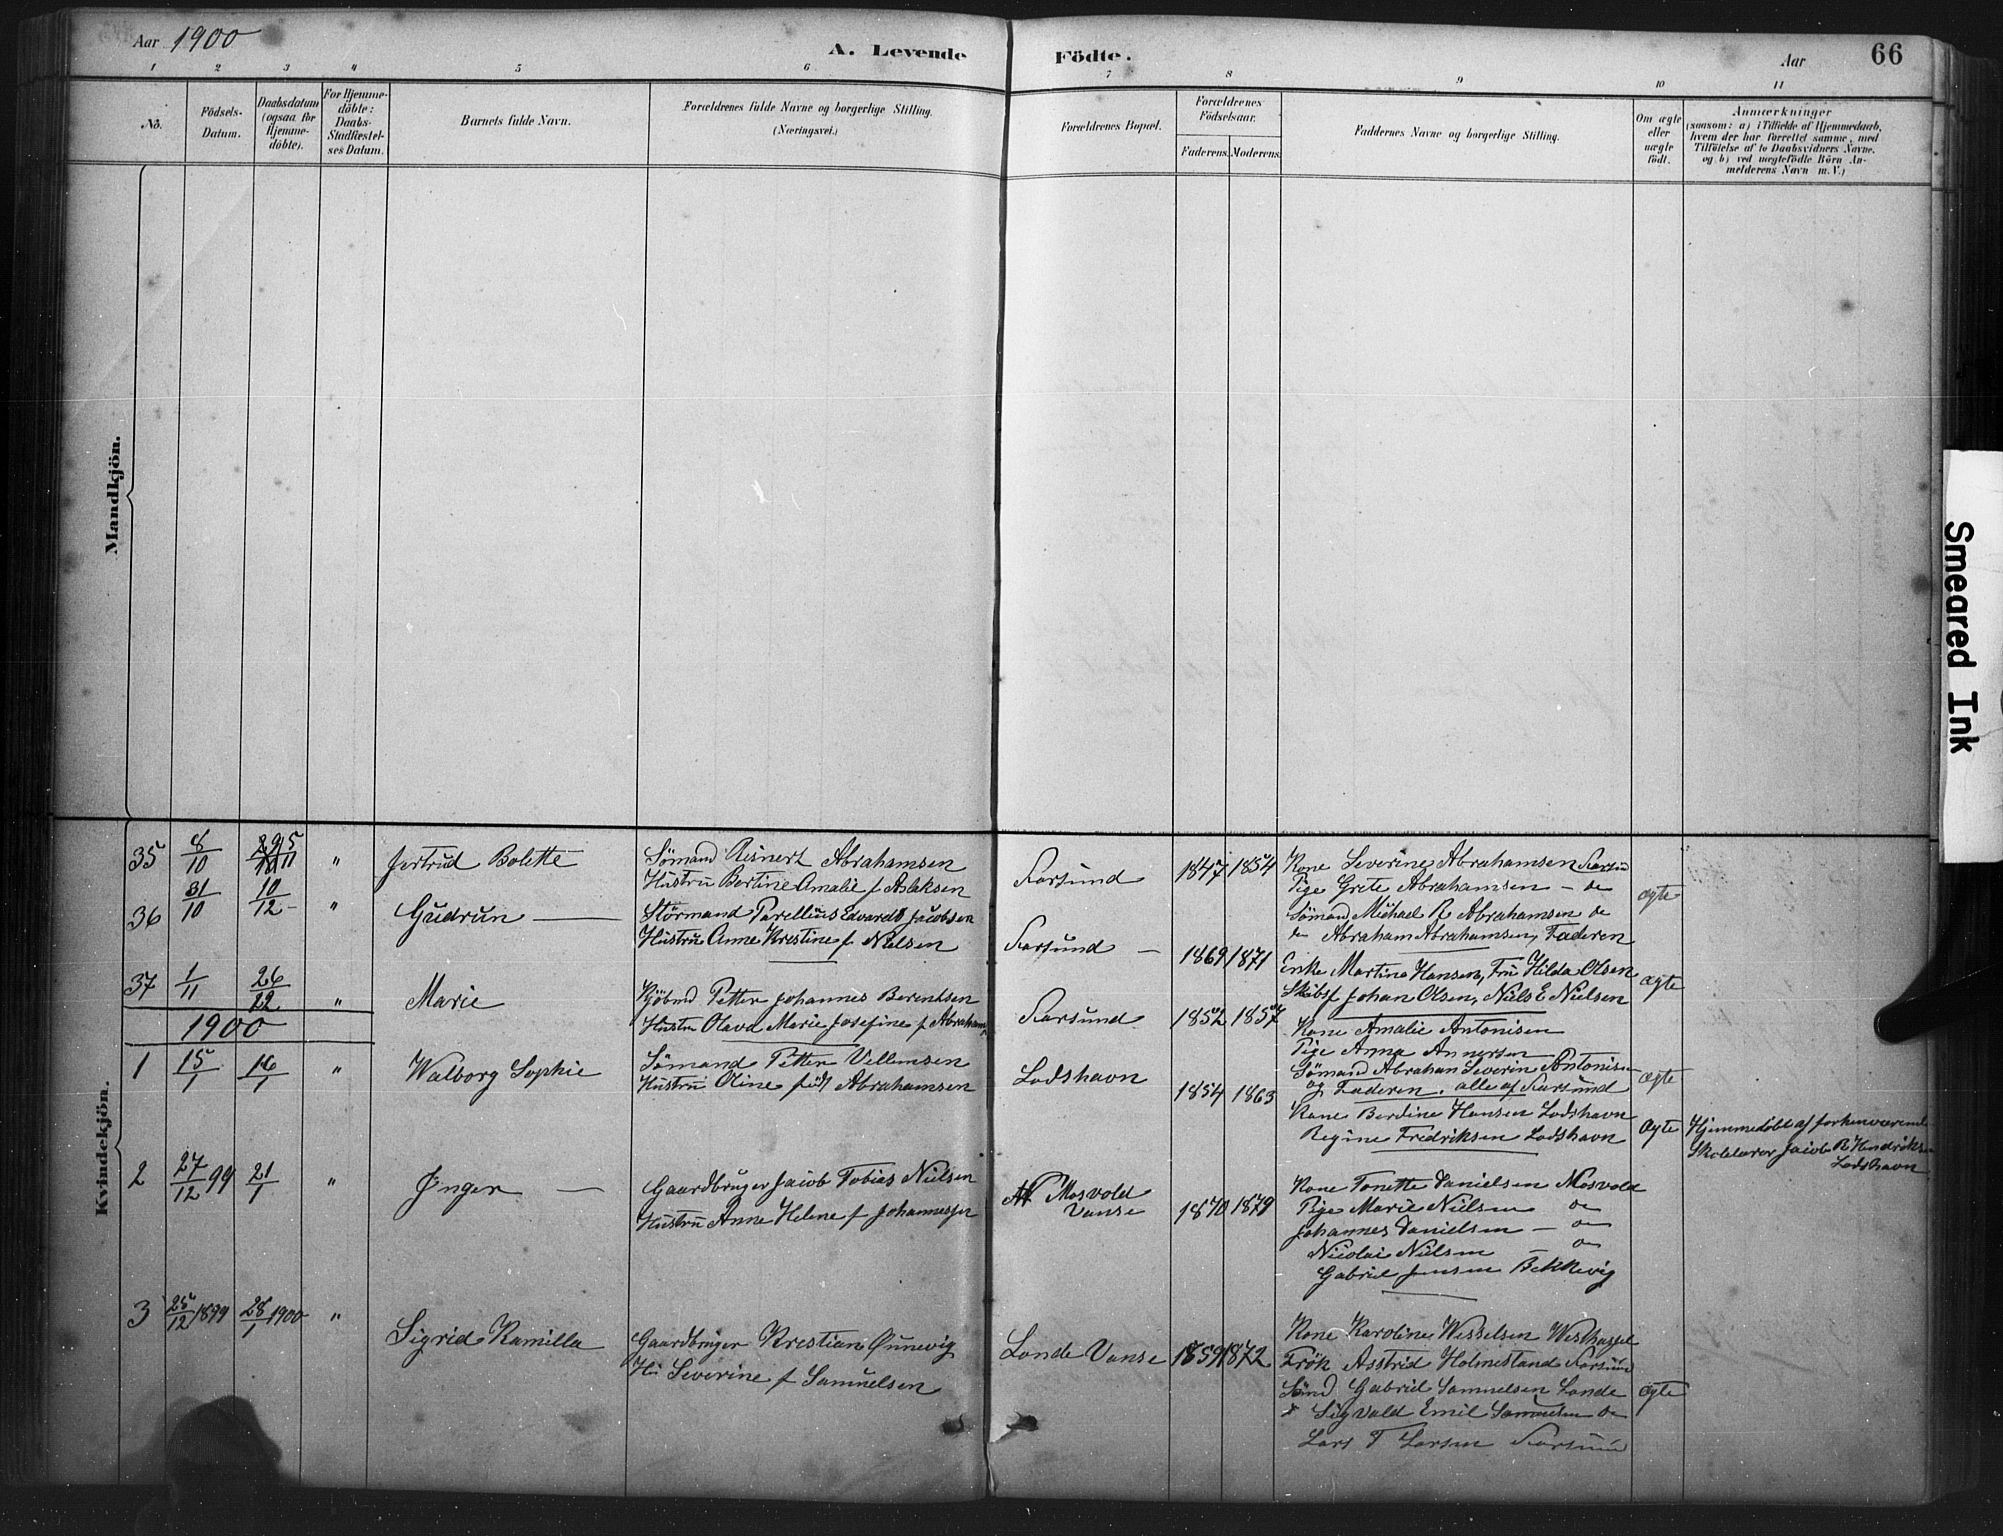 Aar 1900
A. Levende Födte.
Aar
66
1 2 3 4 5 6 7 8 9 10 11
No.
Födsels-
Datum.
Daabsdatum
(ogsaa for
Hjemme-
döbte).
For Hjemme-
döbte:
Daabs-
Stadfæstel-
ses Datum.
Barnets fulde Navn.
Forældrenes fulde Navne og borgerlige Stilling.
(Næringsvei.)
Forældrenes Bopæl.
Forældrenes
Födselsaar.
Faderens. Moderens.
Faddernes Navne og borgerlige Stilling.
Om ægte
eller
uægte
födt.
Anmærkninger
(saasom: a) i Tilfælde af Hjemmedaab,
hvem der har forrettet samme, med
Tilföielse af to Daabsvidners Navne.
og b) ved uægtefödte Börn An-
melderens Navn m.V.)
Mandkjön.
Kvindekjön.
35 8/10 5/11 " Jertrud Bolette
Sömand Reinert Abrahamsen
Hustru Bertine Amalie f Aslaksen
Farsund
1847 1854
Kone Severine Abrahamsen Farsund
Pige Grete Abrahamsen – do
Sömand Michael R Abrahamsen do
do Abraham Abrahamsen, Faderen
ægte
36 31/10 10/12 " Gudrun
Störmand Parellius Edvardt Jacobsen
Hustru Anne Kristine f Nielsen
Farsund
1869 1871
Enke Martina Hansen, Fru Hilda Olsen
Skibsf Johan Olsen, Niels E Nielsen
ægte
37 1/11 26/12 " Marie
Kjöbmd Petter Johannes Berentsen
Hustru Olava Marie Josefine f Abrahams
Farsund
1852 1857
Kone Amalie Antonisen
Pige Anna Annersen
Sömand Abraham Severin Antonisen
og Faderen, alle af Farsund
ægte
1900
1 15/1 16/1 " Walborg Sophie
Sömand Petter Villumsen
Hustru Oline födt Abrahamsen
Lodshavn
1854 1863
Kone Berdine Hansen Lodshavn
Regine Fredriksen Lodshavn
ægte
Hjemmedöbt af forhenværende
Skolelærer Jacob R Hendriksen
Lodshavn
2 27/12 99 21/1 " Inger
Gaardbruger Jacob Tobias Nielsen
Hustru Anne Helene f Johannesen
Mosvold
Vanse
1870 1879
Kone Tonette Danielsen Mosvold
Pige Marie Nielsen do
Johannes Danielsen – do
Nicolai Nielsen – do
Gabriel Jensen Bekkevig
3 25/12 1899 28/1 1900 " Sigrid Kamilla
Gaardbruger Kristian Ounevig
Hu Severine f Samuelsen
Lande Vanse
1859 1872
Kone Karoline Wesselsen Westhassel
Frök Asstrid Holmesland Farsund
Sömd Gabriel Samuelsen Lande
Sigvald Emil Samuelsen do
Lars T Larsen Farsund
ægte
Smeared Ink